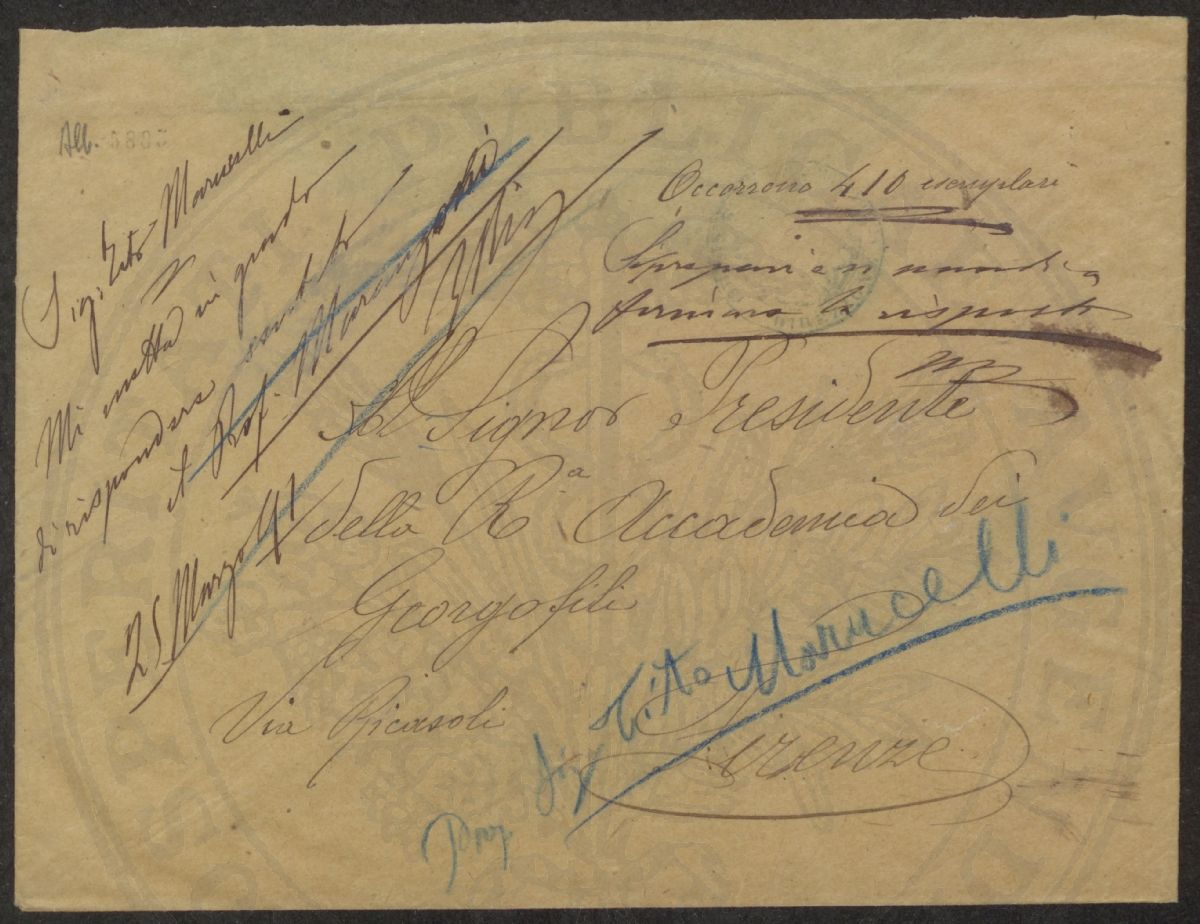 Alb. 6805
Sig. Tito Marucelli
Mi metta in grado
di rispondere subito
il Prof. Marangoni
25 Marzo 41
Occorrono 410 esemplari
Si prepari e si mandi a
firmare la risposta
Al Signor Presidente
della R.a Accademia dei
Georgofili
Via Ricasoli
Firenze
Sig Tito Marucelli